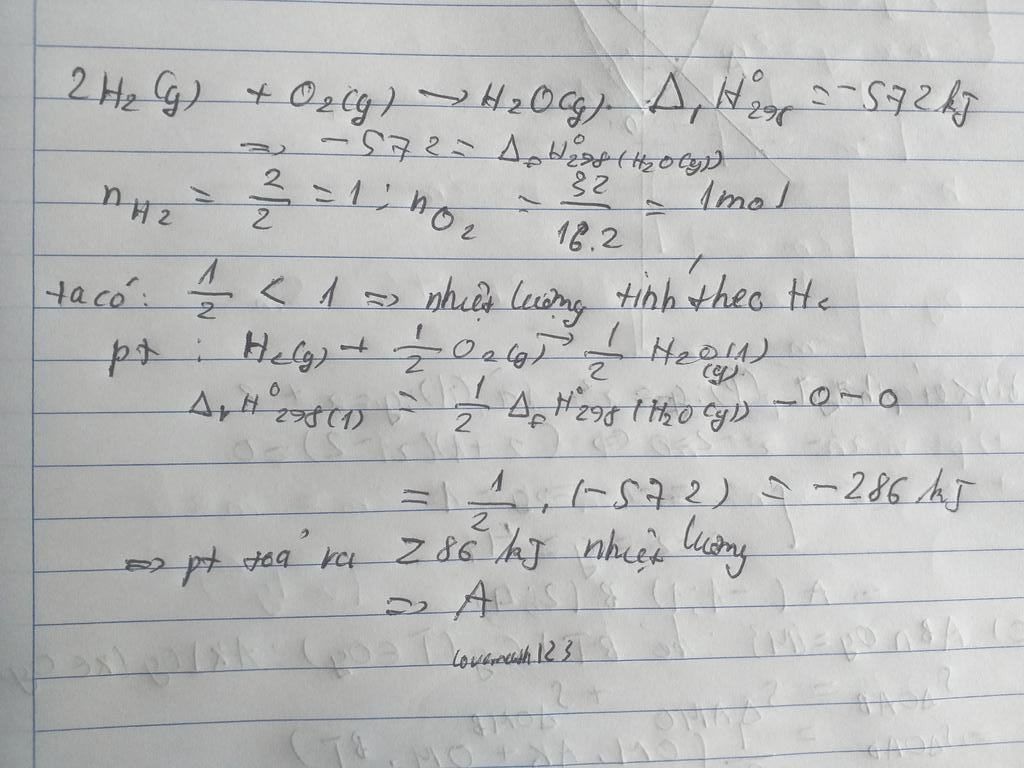 2H₂(g) + O₂(g) → H₂O(g). ΔrH⁰₂₉₈ = -572 kJ
=> -572 = ΔfH⁰₂₉₈(H₂O(g))
nH₂ = 2/2 = 1 ; nO₂ = 32/16.2 = 1mol
ta có: 1/2 < 1 => nhiệt lượng tính theo H₂
pt : H₂(g) + 1/2 O₂(g) → 1/2 H₂O(1) (g)
ΔrH⁰₂₉₈(1) = 1/2 ΔfH⁰₂₉₈(H₂O(g)) - 0 - 0
= 1/2 . (-572) = -286 kJ
=> pt toả ra 286 kJ nhiệt lượng
=> A